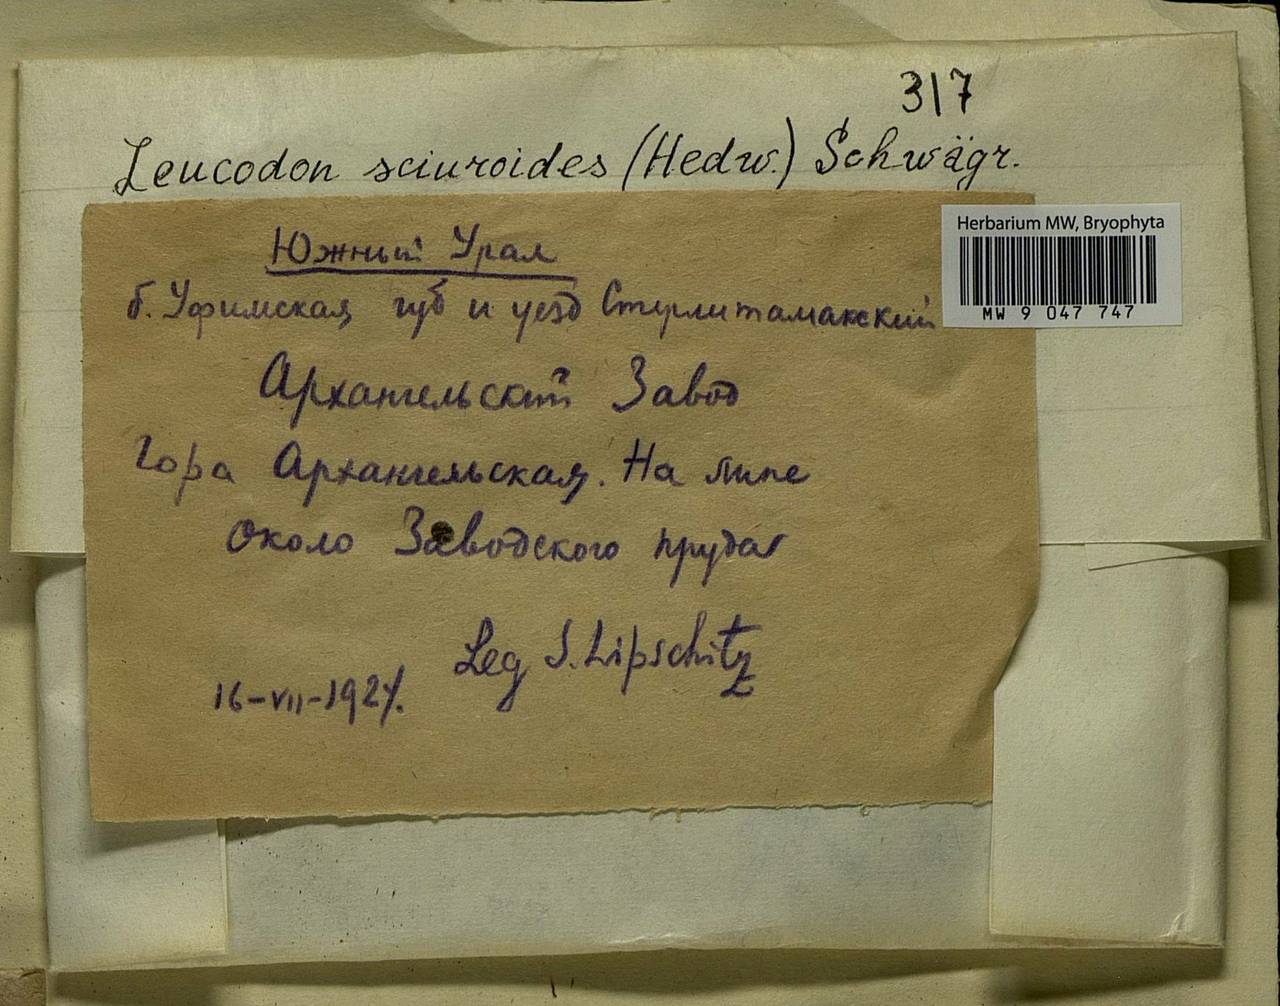 317
Leucodon sciuroides (Hedw.) Schwägr.
Herbarium MW, Bryophyta
MW 9 047 747
Южный Урал
б. Уфимская губ и уезд Стерлитамакский
Архангельский Завод
Гора Архангельская. На липе
около Заводского пруда
Leg S. Lipschitz
16-VII-1927.